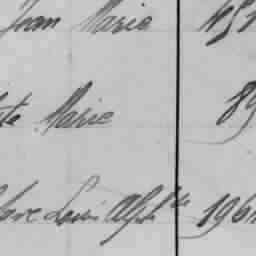 Jean Marie 451
te Marie 89
Louis Alph.se 196